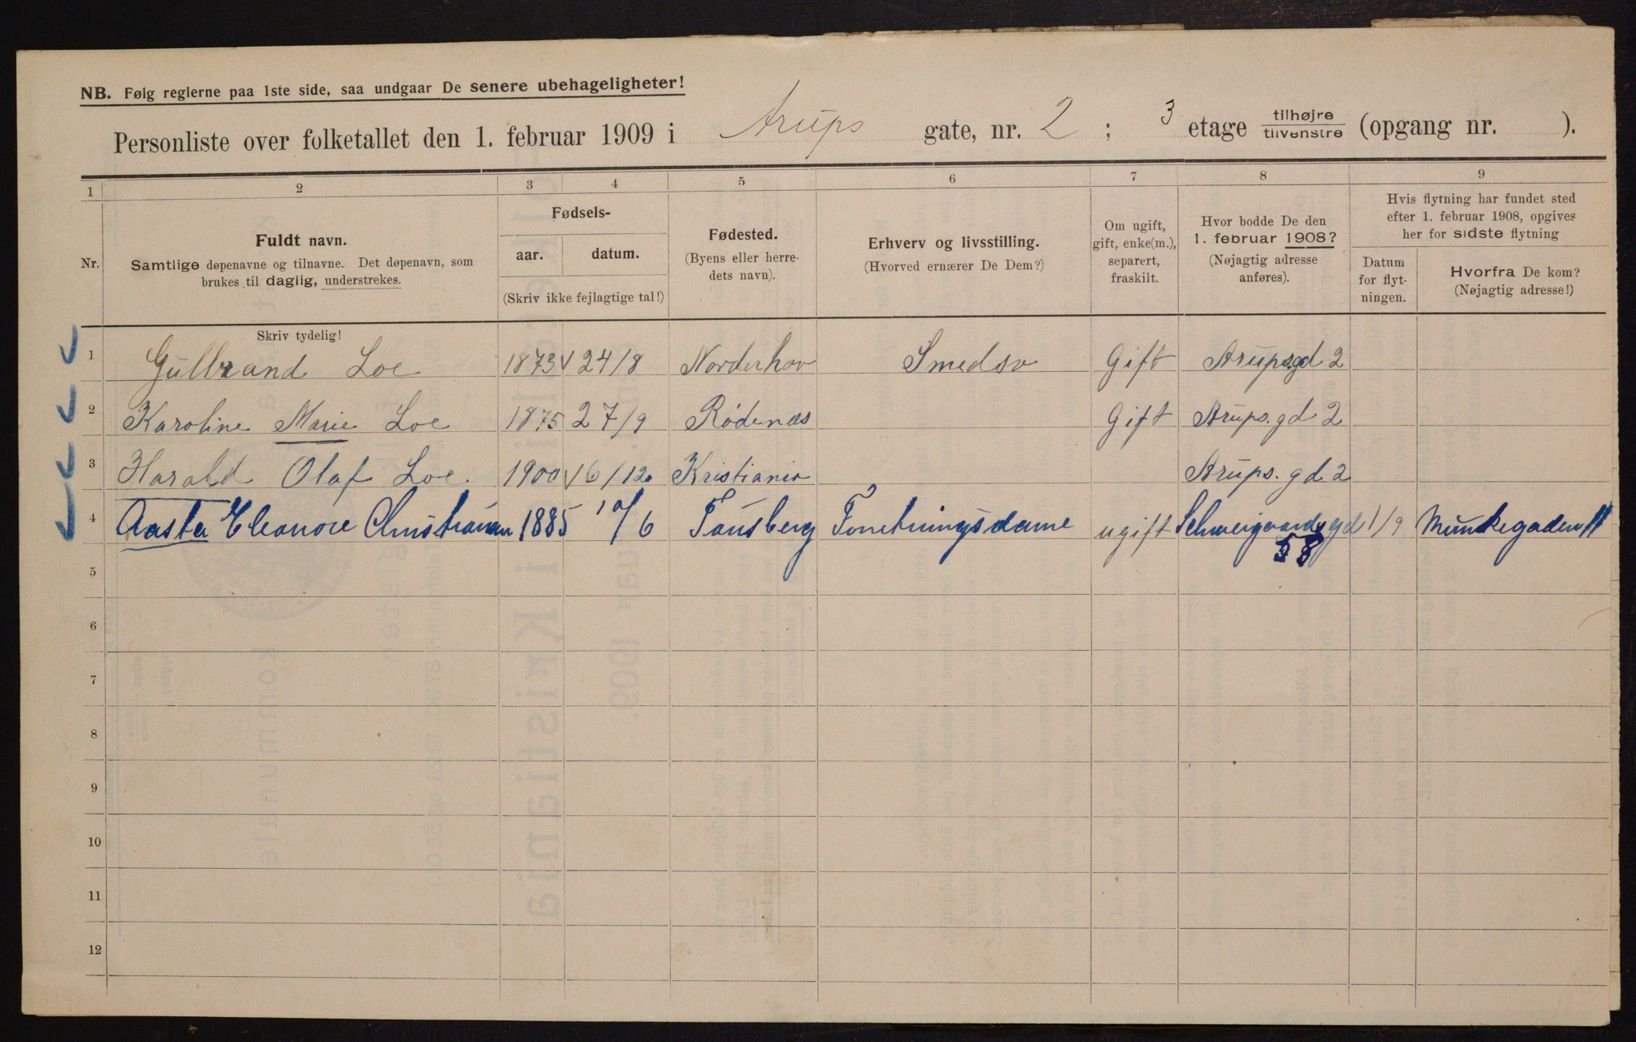 NB. Følg reglerne paa 1ste side, saa undgaar De senere ubehageligheter!
Personliste over folketallet den 1. februar 1909 i Arups gate, nr. 2 ; 3 etage tilhøjre tilvenstre (opgang nr. ).
1 2 3 4 5 6 7 8 9
Nr.
Fuldt navn.
Samtlige døpenavne og tilnavne. Det døpenavn, som
brukes til daglig, understrekes.
Skriv tydelig!
Fødsels-
aar. datum.
(Skriv ikke fejlagtige tal!)
Fødested.
(Byens eller herre-
dets navn).
Erhverv og livsstilling.
(Hvorved ernærer De Dem?)
Om ugift,
gift, enke(m.),
separert,
fraskilt.
Hvor bodde De den
1. februar 1908?
(Nøjagtig adresse
anføres).
Hvis flytning har fundet sted
efter 1. februar 1908, opgives
her for sidste flytning
Datum
for flyt-
ningen.
Hvorfra De kom?
(Nøjagtig adresse!)
1 Gulbrand Loe 1873 24/8 Norderhov Smedsv Gift Arupsgd 2
2 Karoline Marie Loe 1875 27/9 Rødenæs Gift Arups.gd 2
3 Harald Olaf Loe. 1900 6/12 Kristiania Arups.gd 2
4 Aasta Eleonore Christiansen 1885 10/6 Tønsberg Foretningsdame ugift Schweigaardsgd 1/9 Munkegaden 11
58
5
6
7
8
9
10
11
12